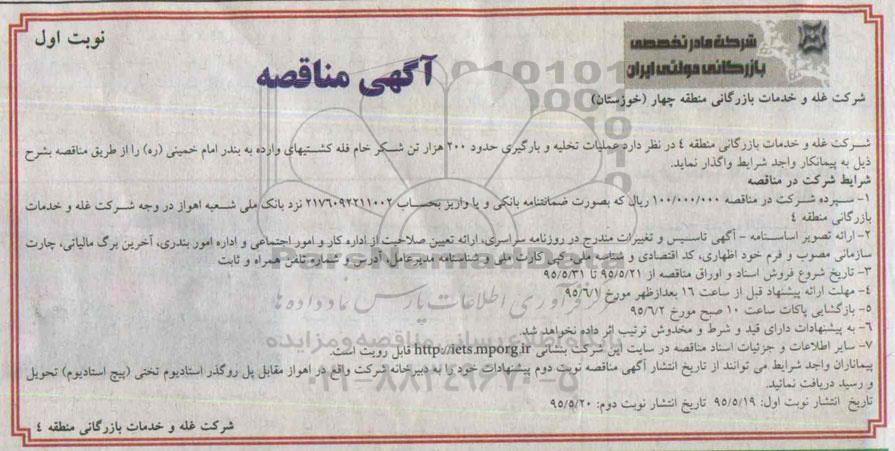 نوبت اول
شرکت مادر تخصصی
بازرگانی دولتی ایران
آگهی مناقصه
شرکت غله و خدمات بازرگانی منطقه چهار (خوزستان)
شرکت غله و خدمات بازرگانی منطقه ۴ در نظر دارد عملیات تخلیه و بارگیری حدود ۲۰۰ هزار تن شکر خام فله کشتیهای وارده به بندر امام خمینی (ره) را از طریق مناقصه بشرح
ذیل به پیمانکار واجد شرایط واگذار نماید.
شرایط شرکت در مناقصه
۱- سپرده شرکت در مناقصه ۱۰۰/۰۰۰/۰۰۰ ریال که بصورت ضمانتنامه بانکی و یا واریز بحساب ۲۱۷۶۰۹۲۲۱۱۰۰۲ نزد بانک ملی شعبه اهواز در وجه شرکت غله و خدمات
بازرگانی منطقه ۴
۲- ارائه تصویر اساسنامه - آگهی تاسیس و تغییرات مندرج در روزنامه سراسری، ارائه تعیین صلاحیت از اداره کار و امور اجتماعی و اداره امور بندری، آخرین برگ مالیاتی، چارت
سازمانی مصوب و فرم خود اظهاری، کد اقتصادی و شناسه ملی، کپی کارت ملی و شناسنامه مدیرعامل، آدرس و شماره تلفن همراه و ثابت
۳- تاریخ شروع فروش اسناد و اوراق مناقصه از ۹۵/۵/۲۱ تا ۹۵/۵/۳۱
۴- مهلت ارائه پیشنهاد قبل از ساعت ۱۶ بعدازظهر مورخ ۹۵/۶/۱
۵- بازگشایی پاکات ساعت ۱۰ صبح مورخ ۹۵/۶/۲
۶- به پیشنهادات دارای قید و شرط و مخدوش ترتیب اثر داده نخواهد شد.
۷- سایر اطلاعات و جزئیات اسناد مناقصه در سایت این شرکت بنشانی http://iets.mporg.ir قابل رویت است.
پیماناران واجد شرایط می توانند از تاریخ انتشار آگهی مناقصه نوبت دوم پیشنهادات خود را به دبیرخانه شرکت واقع در اهواز مقابل پل روگذر استادیوم تختی (پیچ استادیوم) تحویل
و رسید دریافت نمائید.
تاریخ انتشار نوبت اول: ۹۵/۵/۱۹ تاریخ انتشار نوبت دوم: ۹۵/۵/۲۰
شرکت غله و خدمات بازرگانی منطقه ۴
ParsNamadData
فرآوری اطلاعات پارس نماد داده ها
پایگاه اطلاع رسانی مناقصه و مزایده
۰۲۱-۸۸۳۴۹۶۷۰-۵